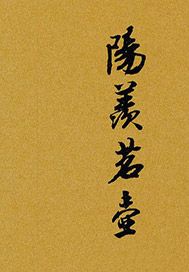 陽羨茗壺